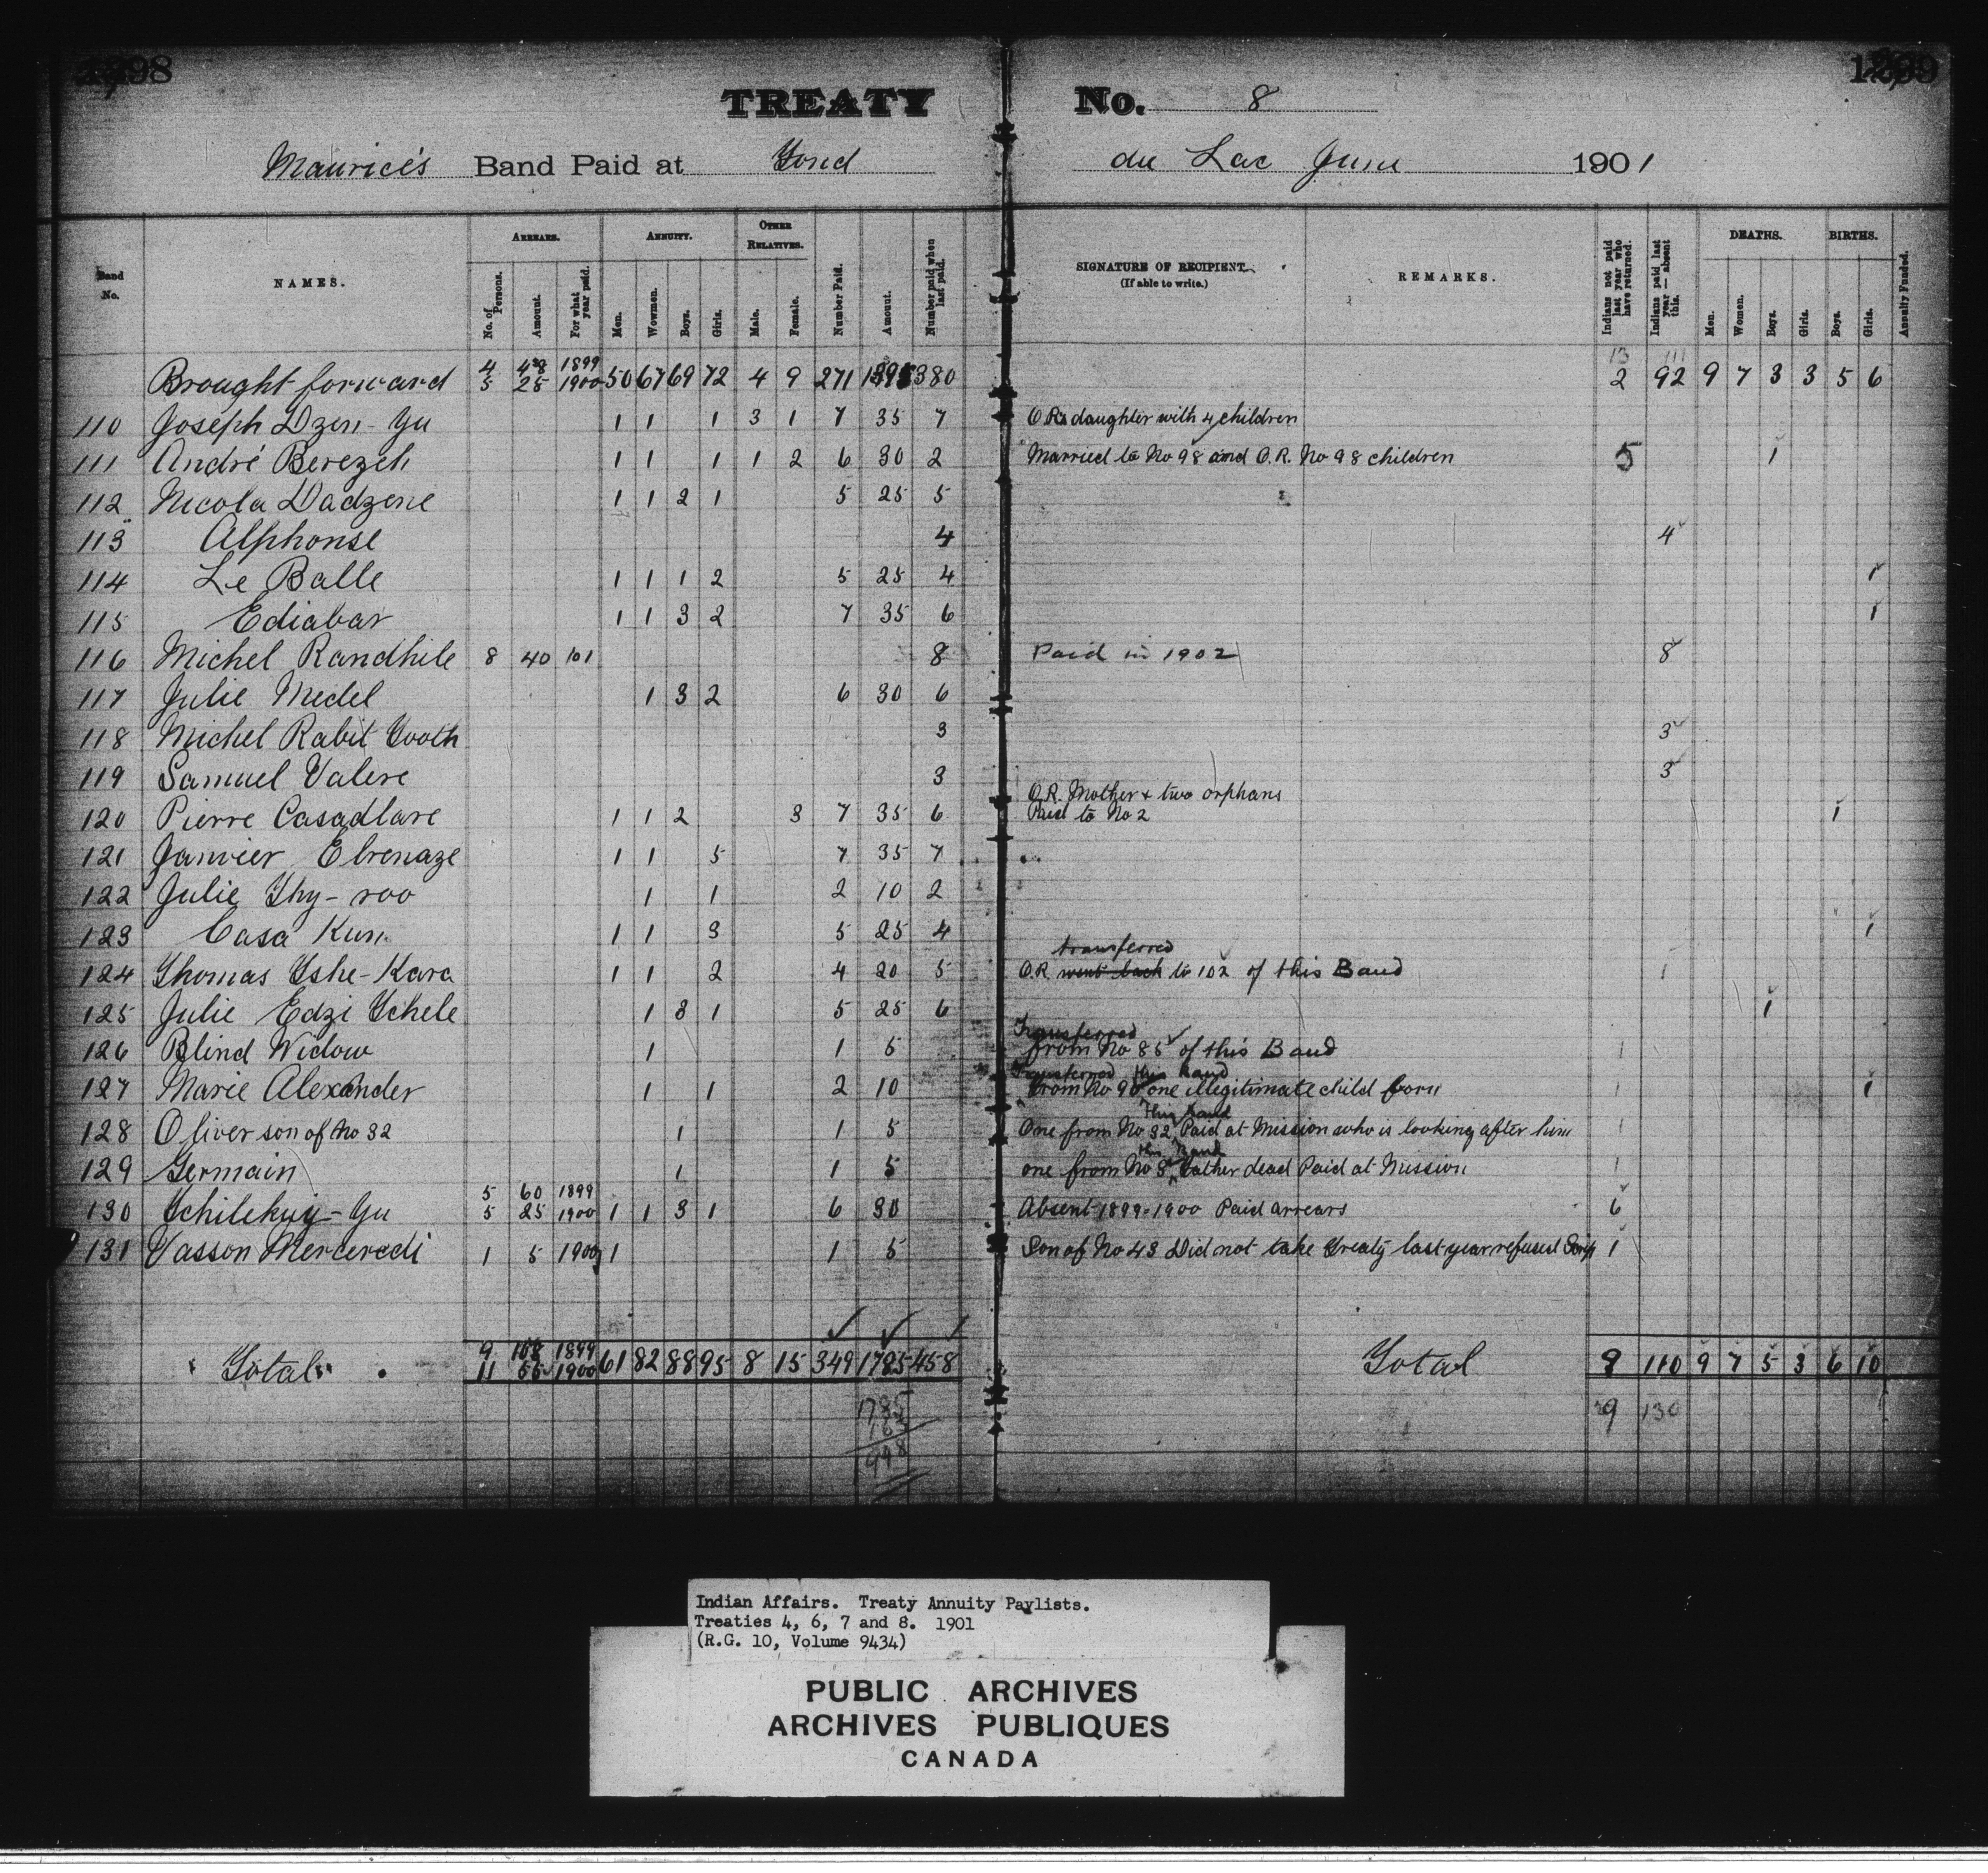 1898
1899
TREATY No. 8
Maurice's Band Paid at Fond du Lac June 1901
Band No.
NAMES.
ARREARS.
No. of Persons.
Amount.
For what year paid.
ANNUITY.
Men.
Wowmen.
Boys.
Girls.
OTHER RELATIVES.
Male.
Female.
Number Paid.
Amount.
Number paid when last paid.
SIGNATURE OF RECIPIENT.
(If able to write.)
REMARKS.
Indians not paid last year who have returned.
Indians paid last year — absent this.
DEATHS.
Men.
Women.
Boys.
Girls.
BIRTHS.
Boys.
Girls.
Annuity Funded.
4 48 1899 13 111
Brought forward 5 25 1900 50 67 69 72 4 9 271 1395 380 2 92 9 7 3 3 5 6
110 Joseph Dzen-Yu 1 1 1 3 1 7 35 7 O.R. daughter with 4 children
111 André Berezeh 1 1 1 1 2 6 30 2 Married to No 98 and O.R. No 98 children 5 1
112 Nicola Dadzene 1 1 2 1 5 25 5
113 Alphonse 4 4
114 Le Balle 1 1 1 2 5 25 4 1
115 Ediabar 1 1 3 2 7 35 6 1
116 Michel Randhile 8 40 101 8 Paid in 1902 8
117 Julie Medel 1 3 2 6 30 6
118 Michel Rabit Tooth 3 3
119 Samuel Valere 3 3
O.R. Mother + two orphans
120 Pierre Casadlare 1 1 2 3 7 35 6 Paid to No 2 1
121 Janvier Ebrenaze 1 1 5 7 35 7
122 Julie Thy-roo 1 1 2 10 2
123 Casa Kun 1 1 3 5 25 4 1
transferred
124 Thomas Tshe-Kara 1 1 2 4 20 5 O.R. went back to 102 of this Band 1
125 Julie Edzi Tchele 1 3 1 5 25 6 1
Transferred
126 Blind Widow 1 1 5 from No 85 of this Band 1
Transferred this band
127 Marie Alexander 1 1 2 10 from No 90 one illegitimate child born 1 1
This band
128 Oliver son of No 32 1 1 5 One from No 32 Paid at Mission who is looking after him 1
this Band
129 Germain 1 1 5 one from No 8 Father dead Paid at Mission 1
5 60 1899
130 Tchilekuy-Yu 5 25 1900 1 1 3 1 6 30 Absent 1899-1900 Paid arrears 6
131 Vasson Mercredi 1 5 1900 1 1 5 Son of No 43 Did not take Treaty last year refused Scrip 1
9 108 1899
Total 11 55 1900 61 82 88 95 8 15 349 1785 458 Total 8 110 9 7 5 3 6 10
1785 29 130
163
1948
Indian Affairs. Treaty Annuity Paylists.
Treaties 4, 6, 7 and 8. 1901
(R.G. 10, Volume 9434)
PUBLIC ARCHIVES
ARCHIVES PUBLIQUES
CANADA